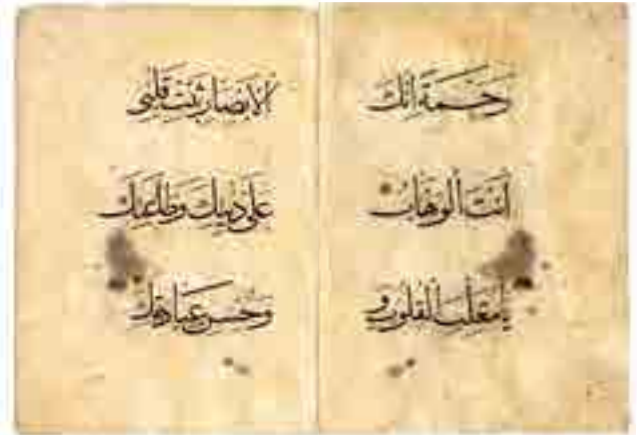 رَحْمَةً اِنَّكَ
اَنْتَ الْوَهَّابُ
يا مقلب القلوب و
الابصار ثبت قلبى
على دينك وطاعتك
وحسن عبادتك